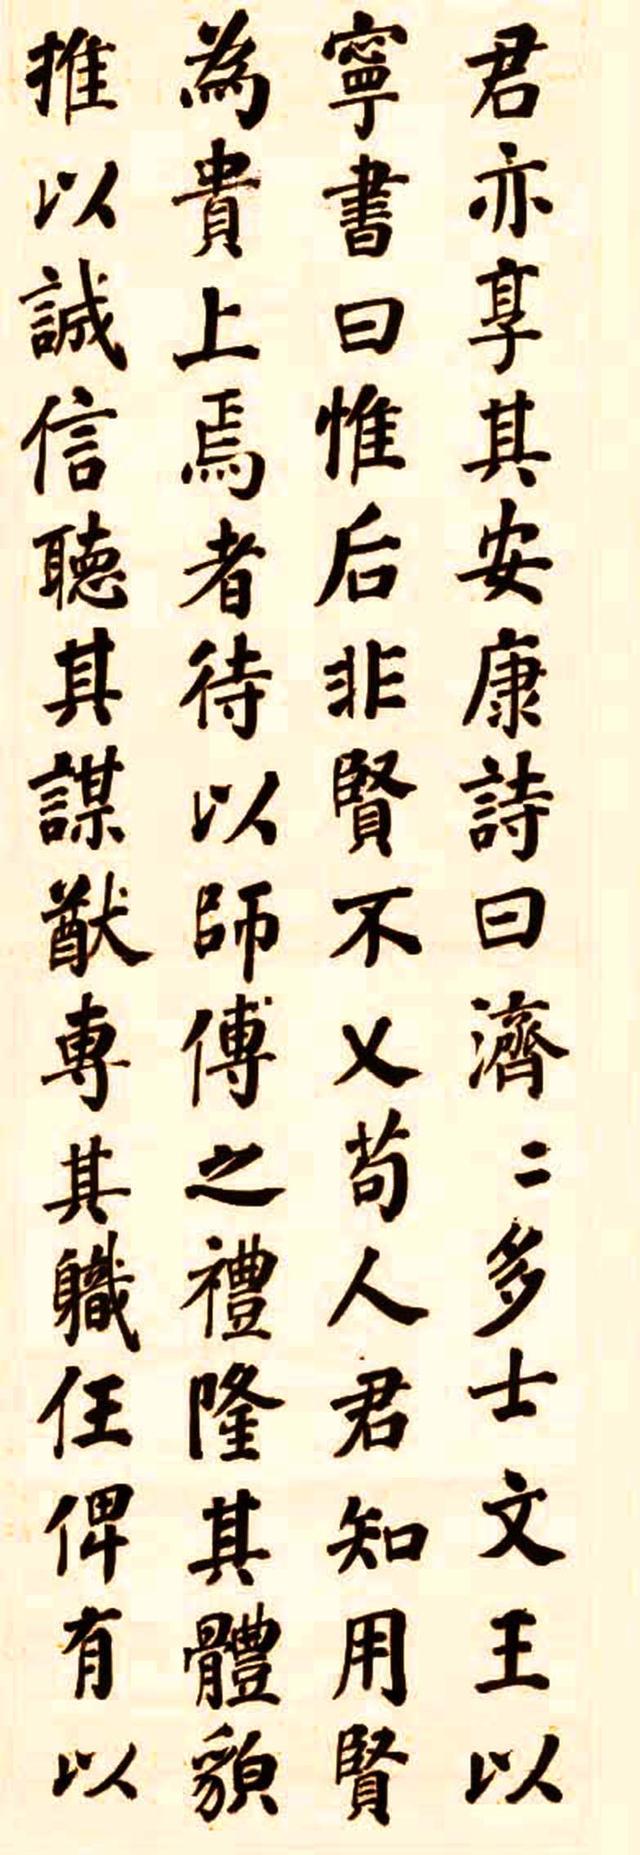 君亦享其安康詩曰濟〻多士文王以
寧書曰惟后非賢不乂苟人君知用賢
為貴上焉者待以師傅之禮隆其體貌
推以誠信聽其謀猷專其職任俾有以